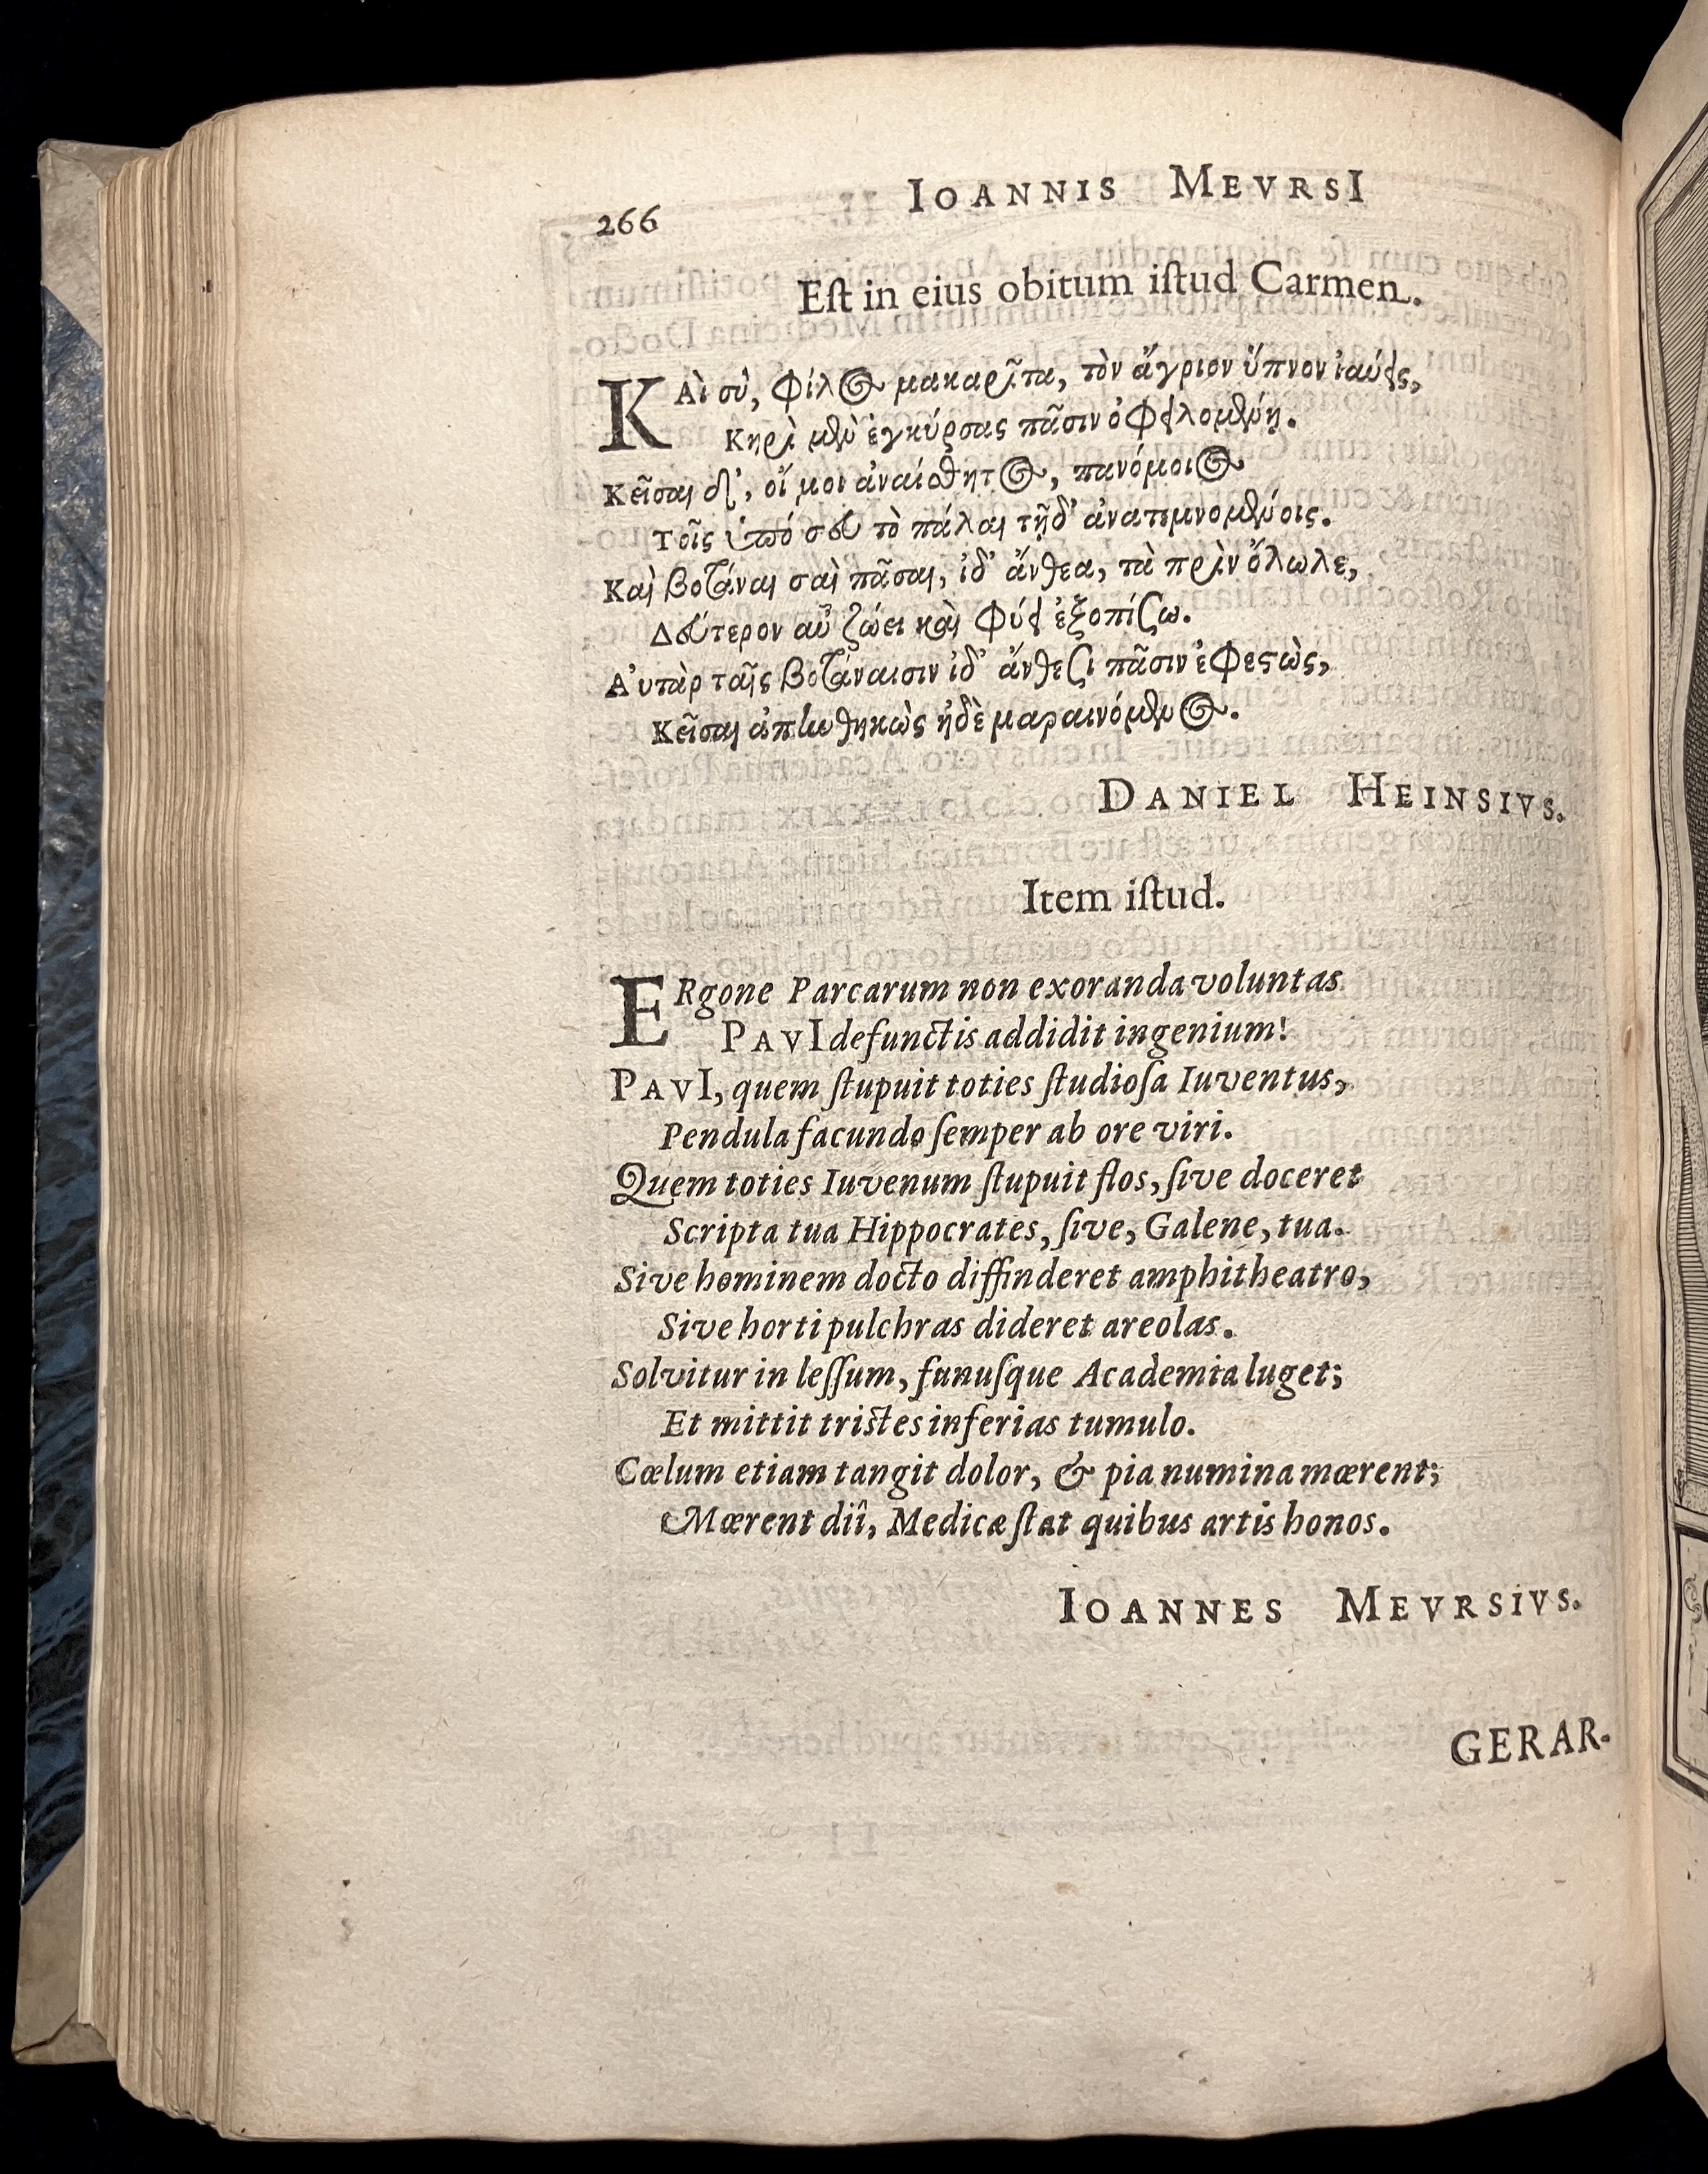 266 IOANNIS MEVRSI
Eſt in eius obitum iſtud Carmen.
ΚΑὶ σὺ, φίλος μακαρῖτα, τὸν ἄγριον ὕπνον ἰαύεις,
Κηρὶ μὲν ἐγκύρσας πᾶσιν ὀφειλομένῃ.
Κεῖσαι δ', οἴ μοι ἀναίσθητος, πανόμοιος
Τοῖς ὑπό σου τὸ πάλαι τῇδ' ἀνατεμνομένοις.
Καὶ βοτάναι σαὶ πᾶσαι, ἰδ' ἄνθεα, τὰ πρὶν ὄλωλε,
Δεύτερον αὖ ζώει καὶ φύει ἐξοπίσω.
Αὐτὰρ ταῖς βοτάναισιν ἰδ' ἄνθεσι πᾶσιν ἐφεστὼς,
Κεῖσαι ἀπηνθηκὼς ἠδὲ μαραινόμενος.
DANIEL HEINSIVS.
Item iſtud.
ERgone Parcarum non exoranda voluntas
PAVI defunctis addidit ingenium!
PAVI, quem ſtupuit toties ſtudioſa Iuventus,
Pendula facundo ſemper ab ore viri.
Quem toties Iuvenum ſtupuit flos, ſive doceret
Scripta tua Hippocrates, ſive, Galene, tua.
Sive hominem docto diffinderet amphitheatro,
Sive horti pulchras dideret areolas.
Solvitur in leſſum, funuſque Academia luget;
Et mittit tristes inferias tumulo.
Cœlum etiam tangit dolor, & pia numina mœrent;
Mœrent diî, Medicæ ſtat quibus artis honos.
IOANNES MEVRSIVS.
GERAR-